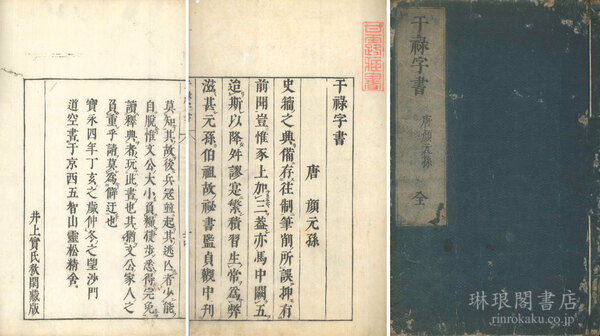 干禄字書
唐顔元孫
全
干祿字書
唐 顔元孫
史籀之興備存往制筆削所誤抑有
前聞豈惟豕上加三蓋亦馬中闕五
迨斯以降舛謬寔繁積習生常為弊
滋甚元孫伯祖故祕書監貞觀中刊
莫知其故後兵冦並起其逃凶者少能
自脱惟文公大小負糧徒步悉得完免
讀釋典者玩此書也其猶文公家人之
負重乎請莫為僻迂也
寶永四年丁亥之歳仲冬之望沙門
道空書于京西五智山靈松精舎
井上實氏敎閑藏版
琳琅閣書店
rinrokaku.co.jp